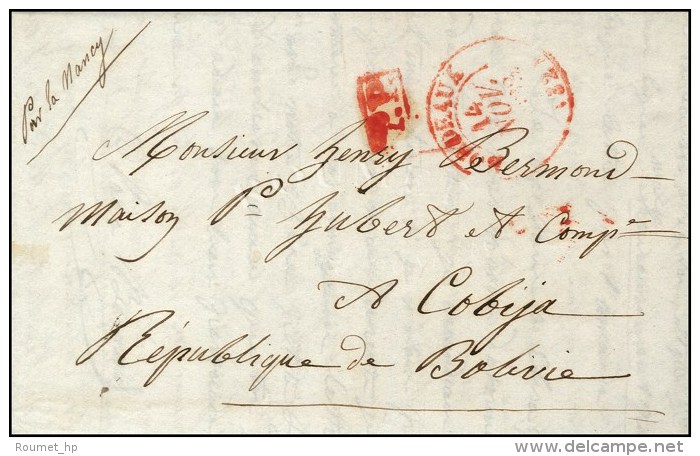 Par la Nancy
P.P.
BORDEAUX
14
NOV
Monsieur henry Bermond
Maison P.re hubert et Comp.e
A Cobija
République de Bolivie
Roumet_hp
delcampe.net